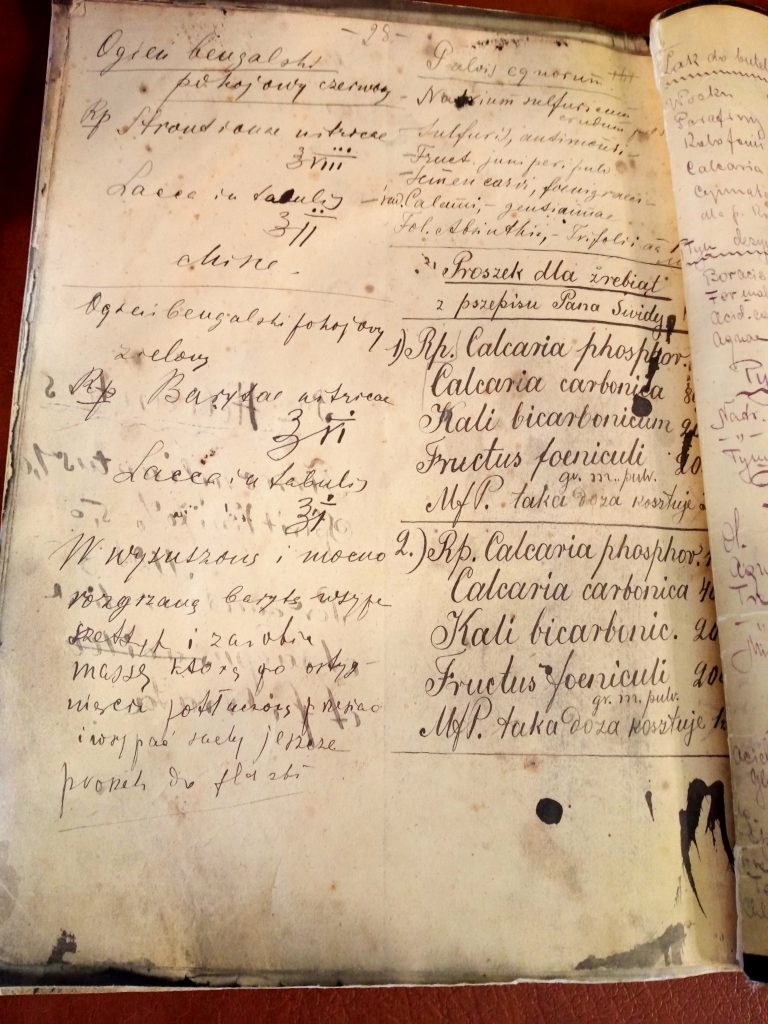 - 28 -
Ogień bengalski
pokojowy czerwony
Rp Strontianae nitricae
ʒviii
Lacca in tabulis
ʒii
Misce.
Ogień bengalski pokojowy
zielony
Rp Barytae nitricae
ʒvi
Lacca in tabulis
ʒi
W wysuszoną i mocno
rozgrzaną barytę wsype
i zarobić
massę którą po ostyg-
nięciu potłuczoną przesiać
i wsypać suchy jeszcze
proszek do
Pulvis equorum
- Natrium sulfuricum
crudum
- Sulfuris, antimonii -
- Fruct. juniperi pulv
- Semen carvi, foenigraeci -
- rad. Calami, - gentianae
Fol. Absinthii, - Trifolii aa
Proszek dla źrebiąt
z pszepisu Pana Świdy
1) Rp. Calcaria phosphor.
Calcaria carbonica
Kali bicarbonicum
Fructus foeniculi 20
gr. m. pulv.
MfP. taka doza kosztuje
2.) Rp. Calcaria phosphor.
Calcaria carbonica 40
Kali bicarbonic. 20
Fructus foeniculi 200
gr. m. pulv.
MfP. taka doza kosztuje
Lak do butel
Wosku
Parafiny
Kalofonii
Calcaria
do p.
Borac
Formal
Acid. ca
Aquae